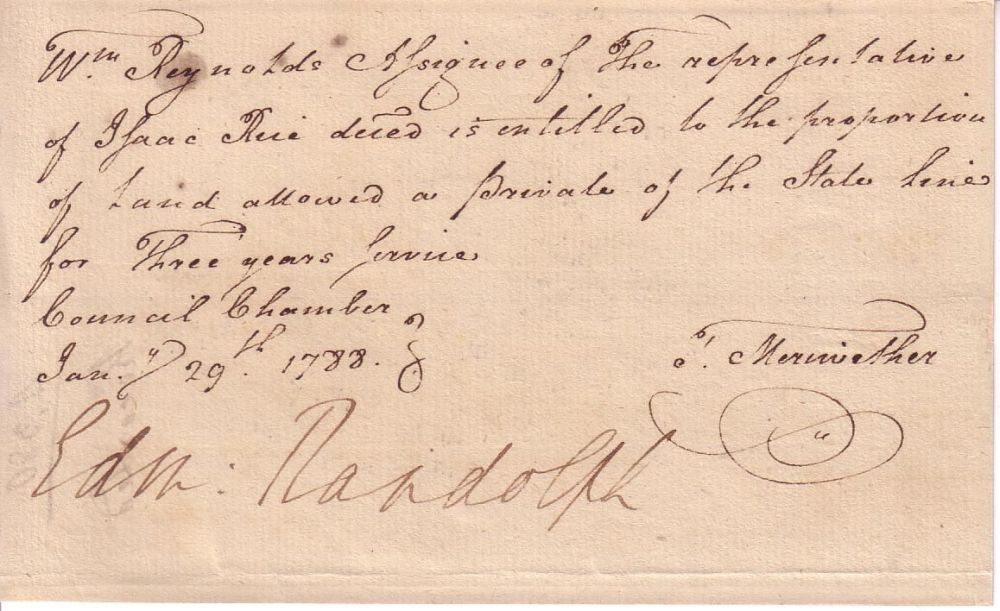 Wm Reynolds Assignee of The representative
of Isaac Rice decēd is entitled to the proportion
of Land allowed a private of the State line
for Three years service
Council Chamber
Jan.y 29th. 1788.
T. Meriwether
Edm: Randolph